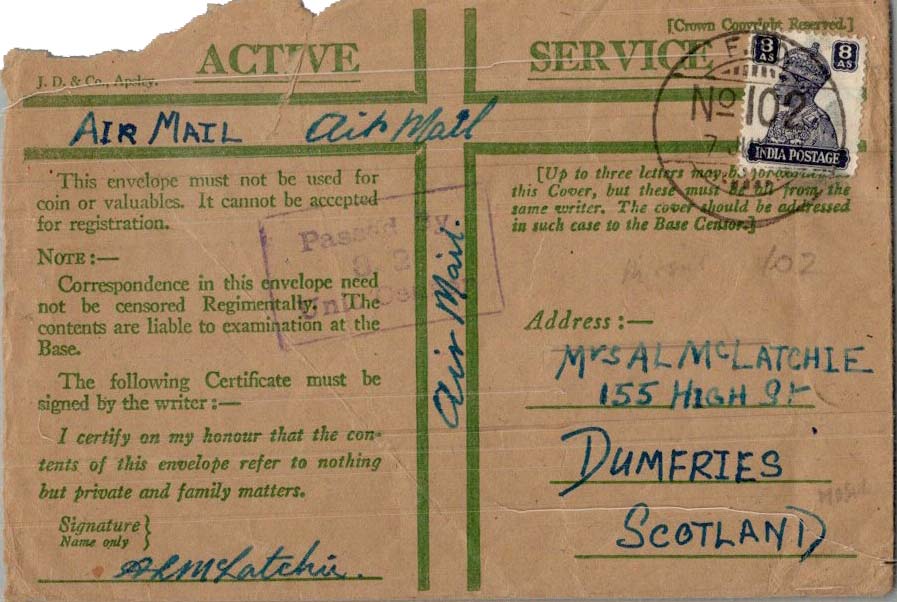 [Crown Copyright Reserved.]
ACTIVE SERVICE
J. D. & Co., Apsley.
8 AS 8 AS
No 102
INDIA POSTAGE
AIR MAIL Air Mail
This envelope must not be used for
coin or valuables. It cannot be accepted
for registration.
NOTE:—
Correspondence in this envelope need
not be censored Regimentally. The
contents are liable to examination at the
Base.
The following Certificate must be
signed by the writer:—
I certify on my honour that the con-
tents of this envelope refer to nothing
but private and family matters.
Signature
Name only
ALMcLatchie.
Passed By
Air Mail.
[Up to three letters may be forwarded in
this Cover, but these must be from the
same writer. The cover should be addressed
in such case to the Base Censor.]
102
Address:—
Mrs AL McLATCHIE
155 HIGH St
DUMFRIES
SCOTLAND